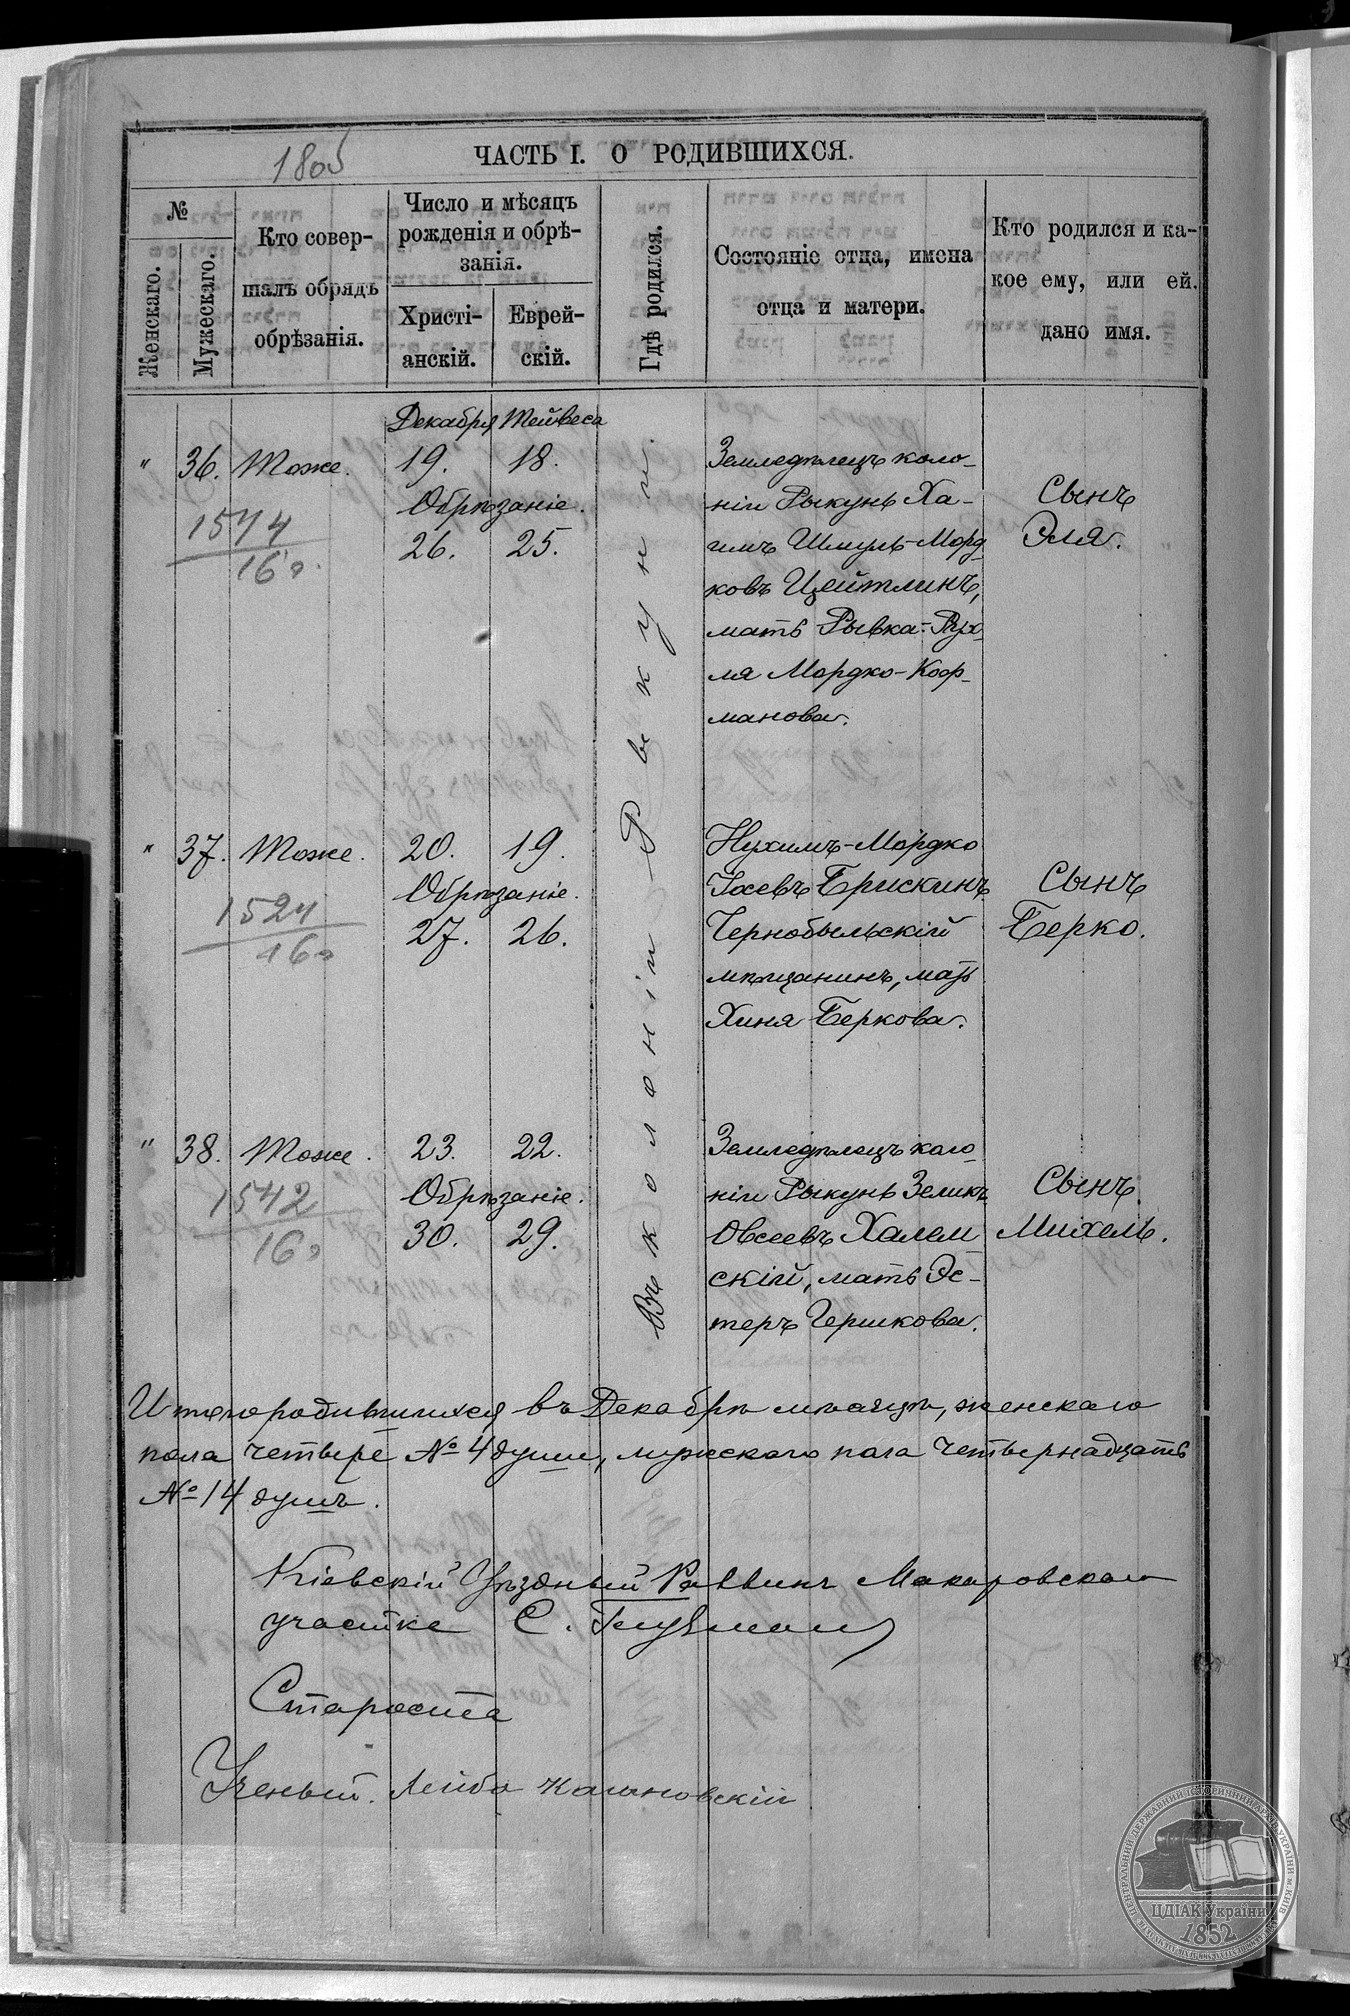 1805
ЧАСТЬ I. О РОДИВШИХСЯ.
№
Женскаго.
Мужескаго.
Кто совер-
шалъ обрядъ
обрѣзанія.
Число и мѣсяцъ
рожденія и обрѣ-
занія.
Христі-
анскій.
Еврей-
скій.
Гдѣ родился.
Состояніе отца, имена
отца и матери.
Кто родился и ка-
кое ему, или ей.
дано имя.
Декабря Тейвеса
" 36. Тоже. 19. 18.
Обрѣзаніе.
26. 25.
1574
160
Въ колоніи Рыкуни.
Земледѣлецъ коло-
ніи Рыкунь Ха-
имъ Шмуль-Морд
ковъ Цейтлинъ,
мать Рывка-Рух-
ля Мордко-Коф-
манова.
Сынъ
Эля.
" 37. Тоже. 20. 19.
Обрѣзаніе.
27. 26.
1524
160
Нухимъ-Мордко
Іосевъ Брискинъ
Чернобыльскій
мѣщанинъ, мать
Хиня Беркова.
Сынъ
Берко.
" 38. Тоже. 23. 22.
Обрѣзаніе.
30. 29.
1542
160
Земледѣлецъ коло-
ніи Рыкунь Зеликъ
Овсеевъ Халем
скій, мать Эс-
теръ Гершкова.
Сынъ
Михель.
Итого родившихся въ Декабрѣ мѣсяцѣ, женскаго
пола четверо № 4 души, мужскаго пола четырнадцать
№ 14 душъ.
Кіевскій Уѣздный Раввинъ Макаровскаго
участка С.
Староста
Ученый. Лейба
ЦЕНТРАЛЬНИЙ ДЕРЖАВНИЙ ІСТОРИЧНИЙ АРХІВ УКРАЇНИ м. КИЇВ
ЦДІАК України
1852